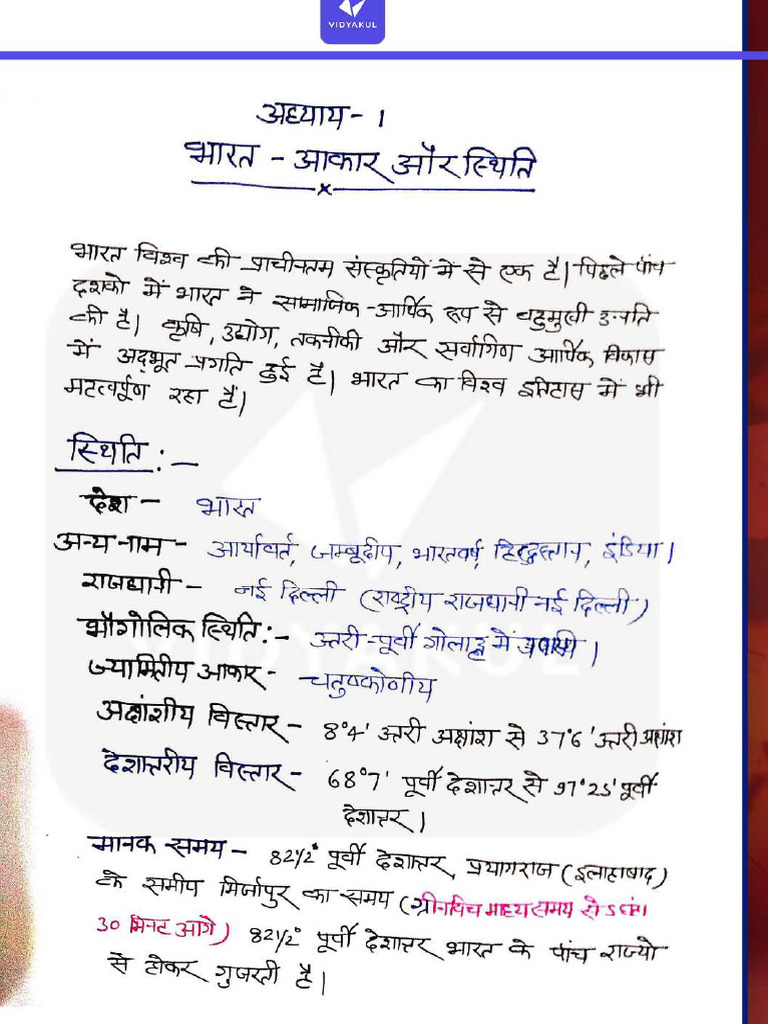 VIDYAKUL
अध्याय - 1
भारत - आकार और स्थिति
भारत विश्व की प्राचीनतम संस्कृतियों में से एक है। पिछले पांच
दशको में भारत ने सामाजिक-आर्थिक रूप से बहुमुखी उन्नति
की है। कृषि, उद्योग, तकनीकी और सर्वांगिण आर्थिक विकास
में अद्भूत प्रगति हुई है। भारत का विश्व इतिहास में भी
महत्वपूर्ण रहा है।
स्थिति : —
देश - भारत
अन्य नाम - आर्यावर्त, जम्बूद्वीप, भारतवर्ष, हिन्दुस्तान, इंडिया।
राजधानी - नई दिल्ली (राष्ट्रीय राजधानी नई दिल्ली)
भौगोलिक स्थिति :- उत्तरी-पूर्वी गोलार्द्ध में
ज्यामितीय आकार - चतुष्कोणीय
अक्षांशीय विस्तार - 8°4' उत्तरी अक्षांश से 37°6' उत्तरी अक्षांश
देशान्तरीय विस्तार - 68°7' पूर्वी देशान्तर से 97°25' पूर्वी
देशान्तर।
मानक समय - 82½° पूर्वी देशान्तर, प्रयागराज (इलाहाबाद)
के समीप मिर्जापुर का समय (ग्रीनविच माध्य समय से 5 घंटा
30 मिनट आगे) 82½° पूर्वी देशान्तर भारत के पांच राज्यो
से होकर गुजरती है।
VIDYAKUL